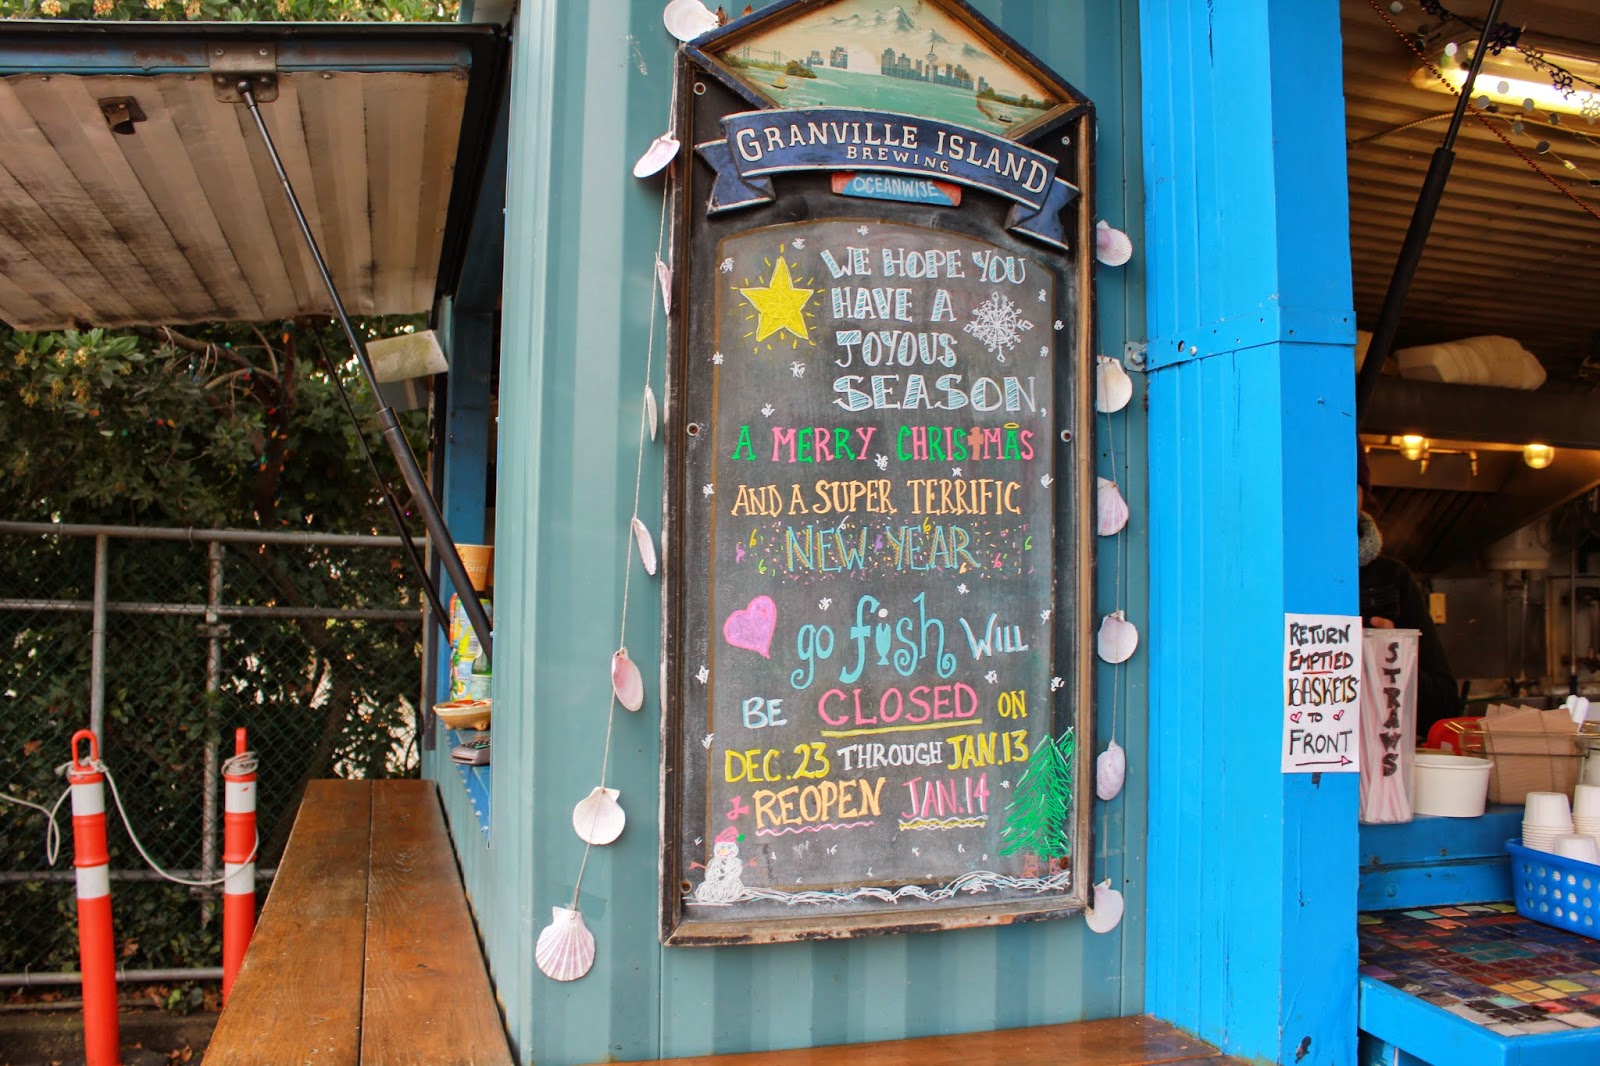 GRANVILLE ISLAND
BREWING
OCEANWISE
WE HOPE YOU
HAVE A
JOYOUS
SEASON,
A MERRY CHRISTMAS
AND A SUPER TERRIFIC
NEW YEAR
go fish WILL
BE CLOSED ON
DEC.23 THROUGH JAN.13
& REOPEN JAN.14
RETURN
EMPTIED
BASKETS
TO
FRONT
STRAWS